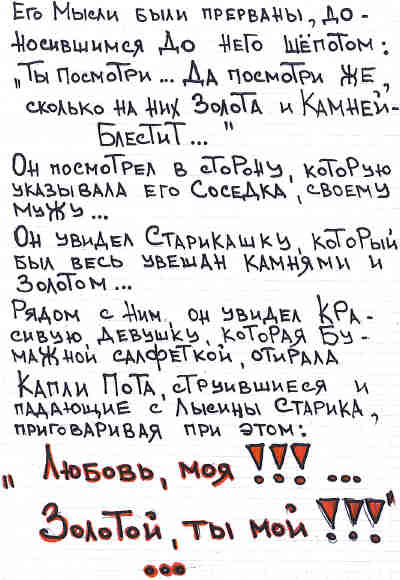 Его Мысли были прерваны, до-
носившимся До него шёпотом:
„Ты Посмотри... Да посмотри же,
сколько на них Золота и Камней-
Блестит..."
Он посмотрел в сторону, которую
указывала его Соседка, своему
мужу...
Он увидел Старикашку, который
был весь увешан камнями и
Золотом...
Рядом с Ним, он увидел Кра-
сивую, девушку, которая Бу-
мажной салфеткой, отирала
Капли Пота, струившиеся и
падающие с Лысины Старика,
приговаривая при этом:
„Любовь, моя !!! ...
Золотой, ты мой !!!"
...